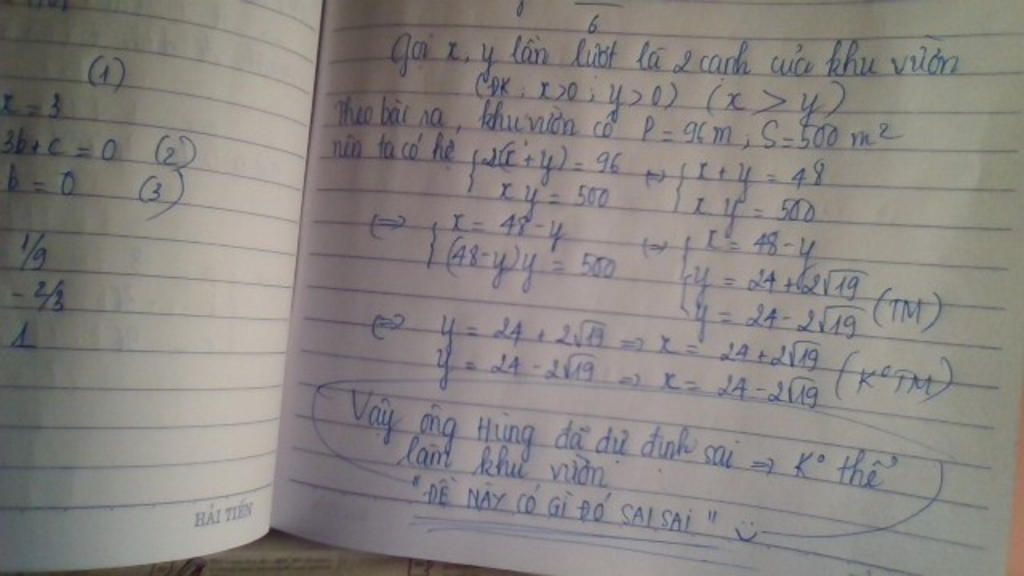 (1)
x = 3
3b + c = 0 (2)
b = 0 (3)
1/9
- 2/3
1
HẢI TIẾN
6
Gọi x, y lần lượt là 2 cạnh của khu vườn
(ĐK: x>0; y>0) (x > y)
Theo bài ra, khu vườn có P = 96m, S = 500 m²
nên ta có hệ { 2(x + y) = 96 ⇔ { x + y = 48
xy = 500 xy = 500
⇔ { x = 48 - y ⇔ { x = 48 - y
(48-y)y = 500 y = 24 + 2√19
y = 24 - 2√19 (TM)
⇔ y = 24 + 2√19 ⇒ x = 24 + 2√19
y = 24 - 2√19 ⇒ x = 24 - 2√19 (K° TM)
Vậy ông Hùng đã dự định sai ⇒ K° thể
làm khu vườn
"ĐỀ NÀY CÓ GÌ ĐÓ SAI SAI"